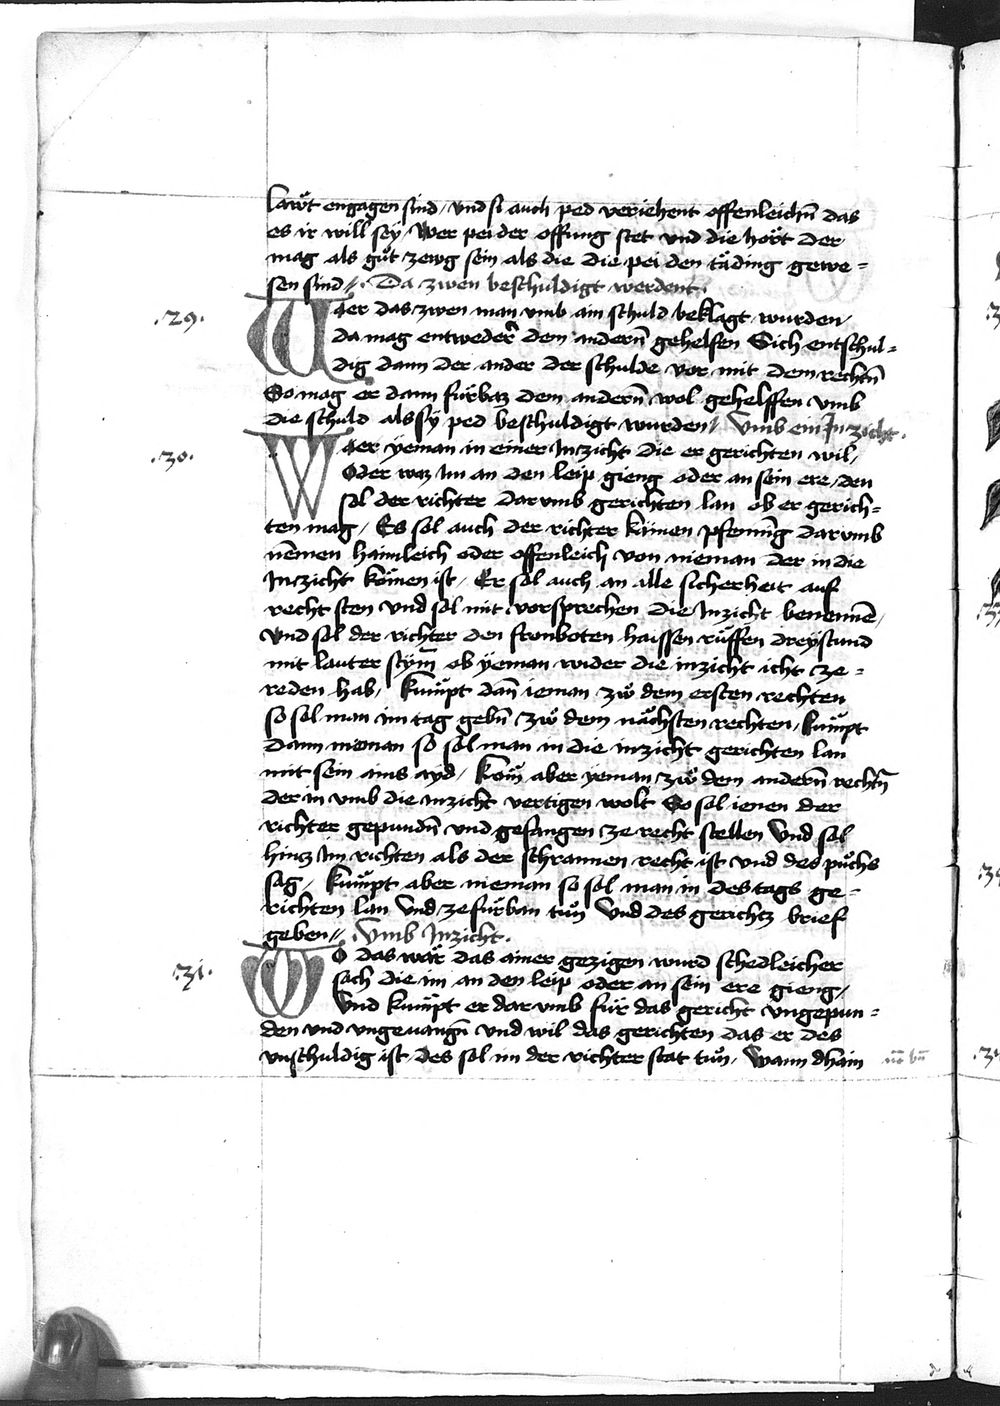 Laẃt engagen sind / vnd si auch ped veriehent offenleichn̄ das
es ir will seÿ / Wer pei der offnung stet vnd die hort Der
mag als gůt zewg sein als die die pei den täding gewe=
sen sind // . Da zwen beschuldigt werdent .
.29. Waer das zwen man vmb ain schuld beklagt wurden /
da mag entweder dem andern̄ gehelfen Sich entschul=
dig dann der ander der schulde vor mit dem rechtn̄
So mag er dann fürbaz dem andern̄ wol gehelffen vmb
die schuld als sÿ ped beschuldigt wurden // Vmb ein Inzicht .
.30. Waer yeman in einer Inzicht die er gerichten wil /
Oder waz im an den leip gieng oder an sein ere / den
sol der richter darvmb gerichten lan ob er gerich=
ten mag / Es sol auch der richter kainen pfenning darvmb
nēmen haimleich oder offenleich von nieman der in die
Inczicht kömen ist / Er sol auch an alle sicherheit auf
recht sten vnd sol mit vorsprechen die Inzicht benennē /
Vnd sol der richter den fronboten haissen rüffen dreystund
mit lauter stÿm̄ ob yeman wider die inzicht icht ze=
reden hab / Kumpt dan̄ ieman zů dem ersten rechten
so sol man im tag gebn̄ zů dem nächsten rechten / kumpt
dann nieman so sol man in die inzicht gerichten lan
mit sein ains ayd / Kom̄ aber yeman zů dem andern̄ rechtn̄
der in vmb die inzicht vertigen wolt So sol ienen der
richter gepundn̄ vnd gefangen ze recht stellen Vnd sol
hincz im richten als der schrannen recht ist vnd des půchs
sag / Kumpt aber nieman so sol man in des tags ge=
richten lan Vnd ze fürban tůn Vnd des gerichtz brief
geben // . Vmb Inzicht .
.31. WO das wär das ainer gezigen wurd schedleicher
sach die im an den leip oder an sein ere gieng /
Vnd kumpt er dar vmb für das gericht vngepun=
den vnd vngeuangn̄ vnd wil das gerichten das er des
vnschuldig ist des sol im der richter stat tůn / Wann dhain